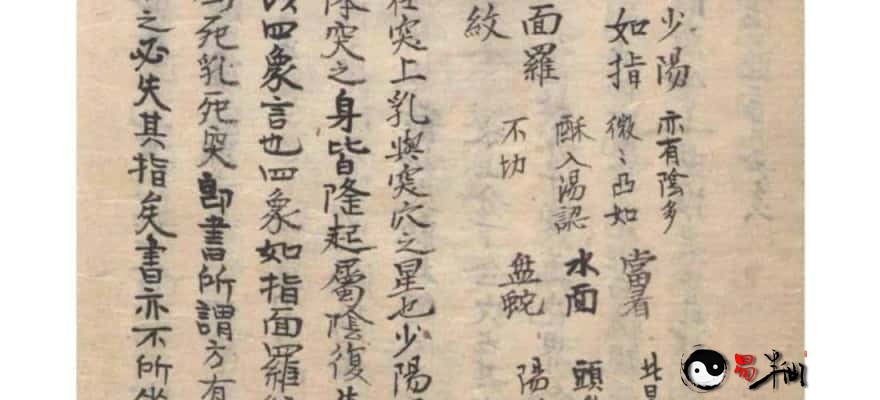 少陽 亦有陰多
如指 微〻凸如 當看
酥入湯認 水面
面羅 不切 盤蛇 陽
紋
突上乳與突穴之星也少陽
突之身皆隆起屬陰復
四象言也四象如指面羅
死乳死突即書所謂方有
之必失其指矣書亦不所
易半仙